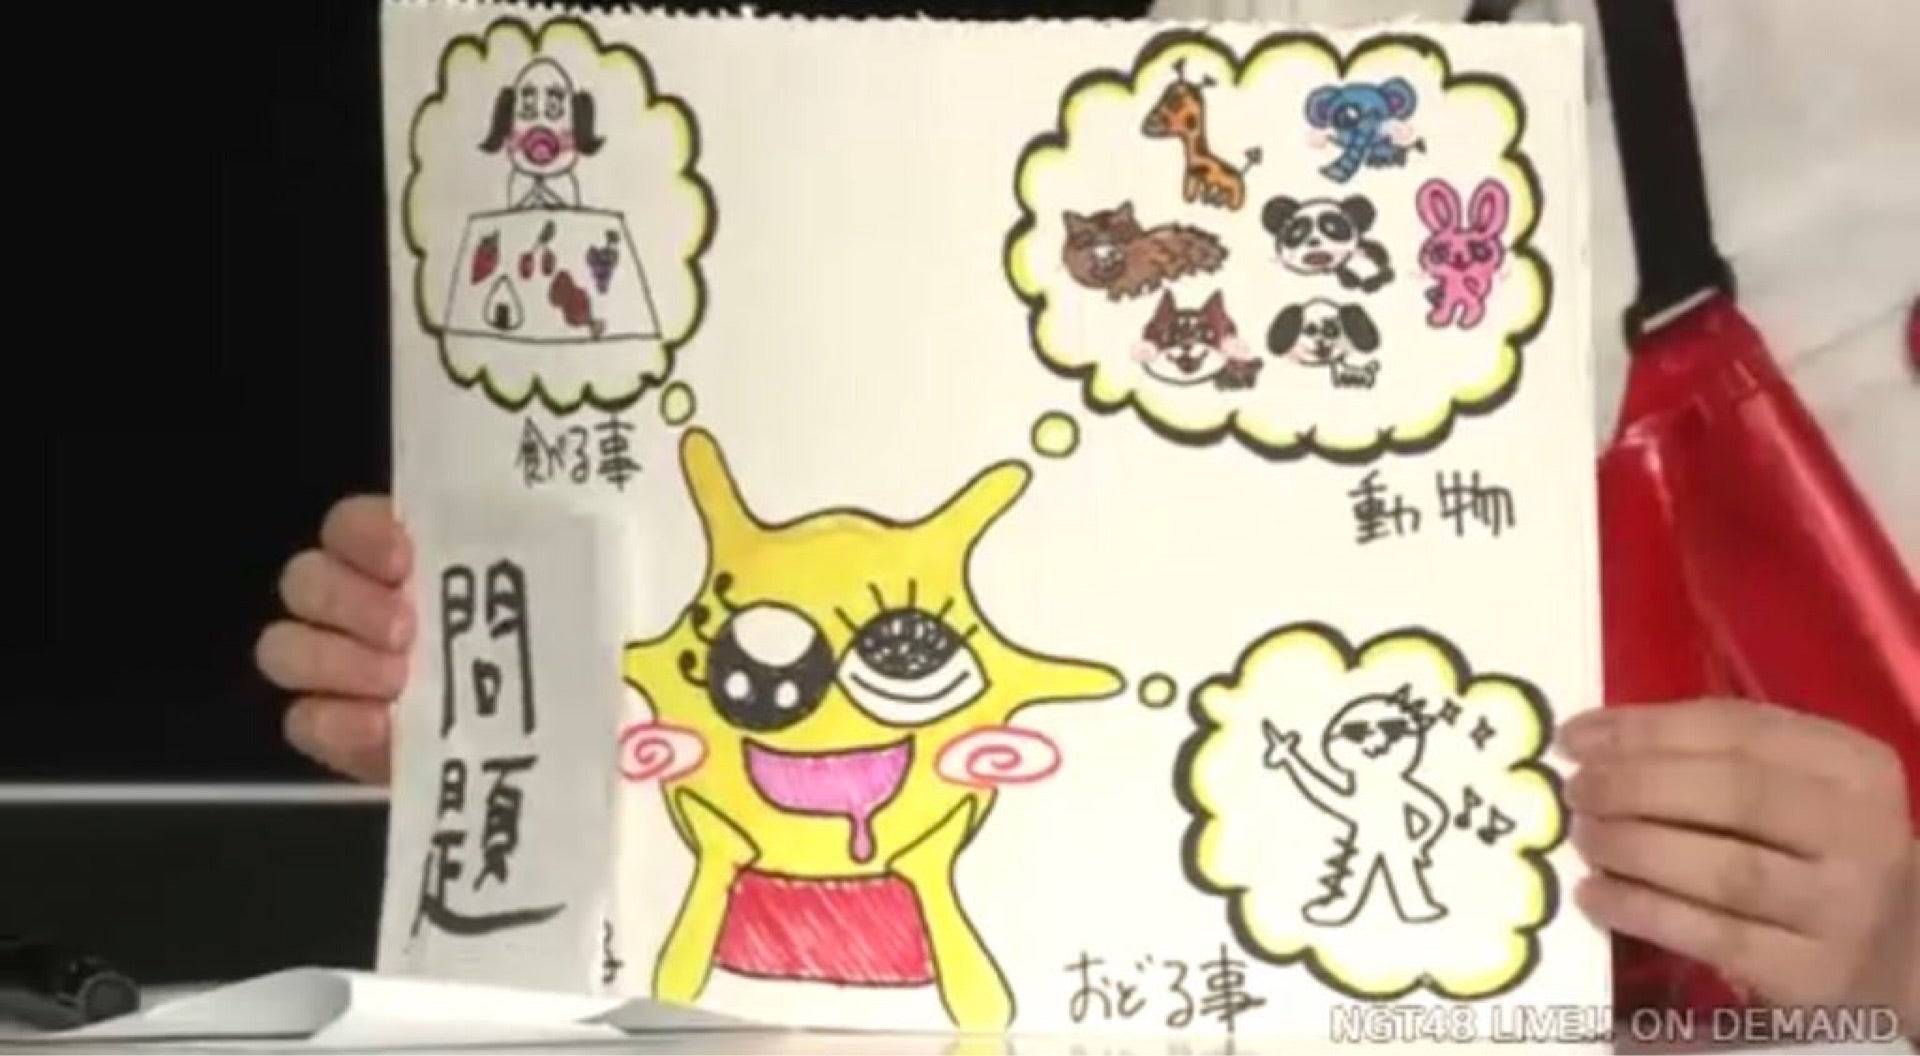 食べる事
動物
問題
おどる事
NGT48 LIVE!! ON DEMAND